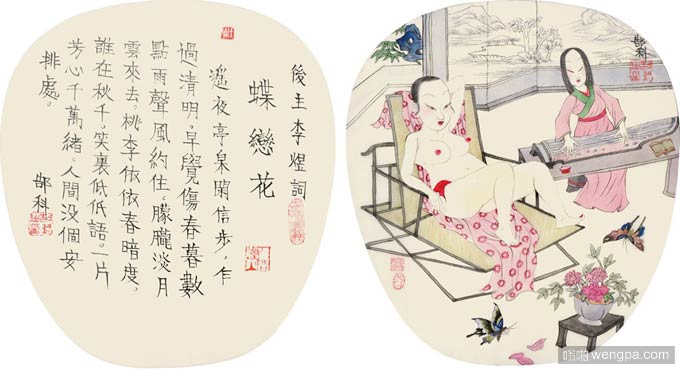 後主李煜詞
蝶戀花
遥夜亭皋閑信步,乍
過清明,早覺傷春暮數
點雨聲風約住。朦朧淡月
雲來去。桃李依依春暗度,
誰在秋千,笑裏低低語。一片
芳心千萬緒,人間没個安
排處。
郜科
郜科
嗡啪wengpa.com